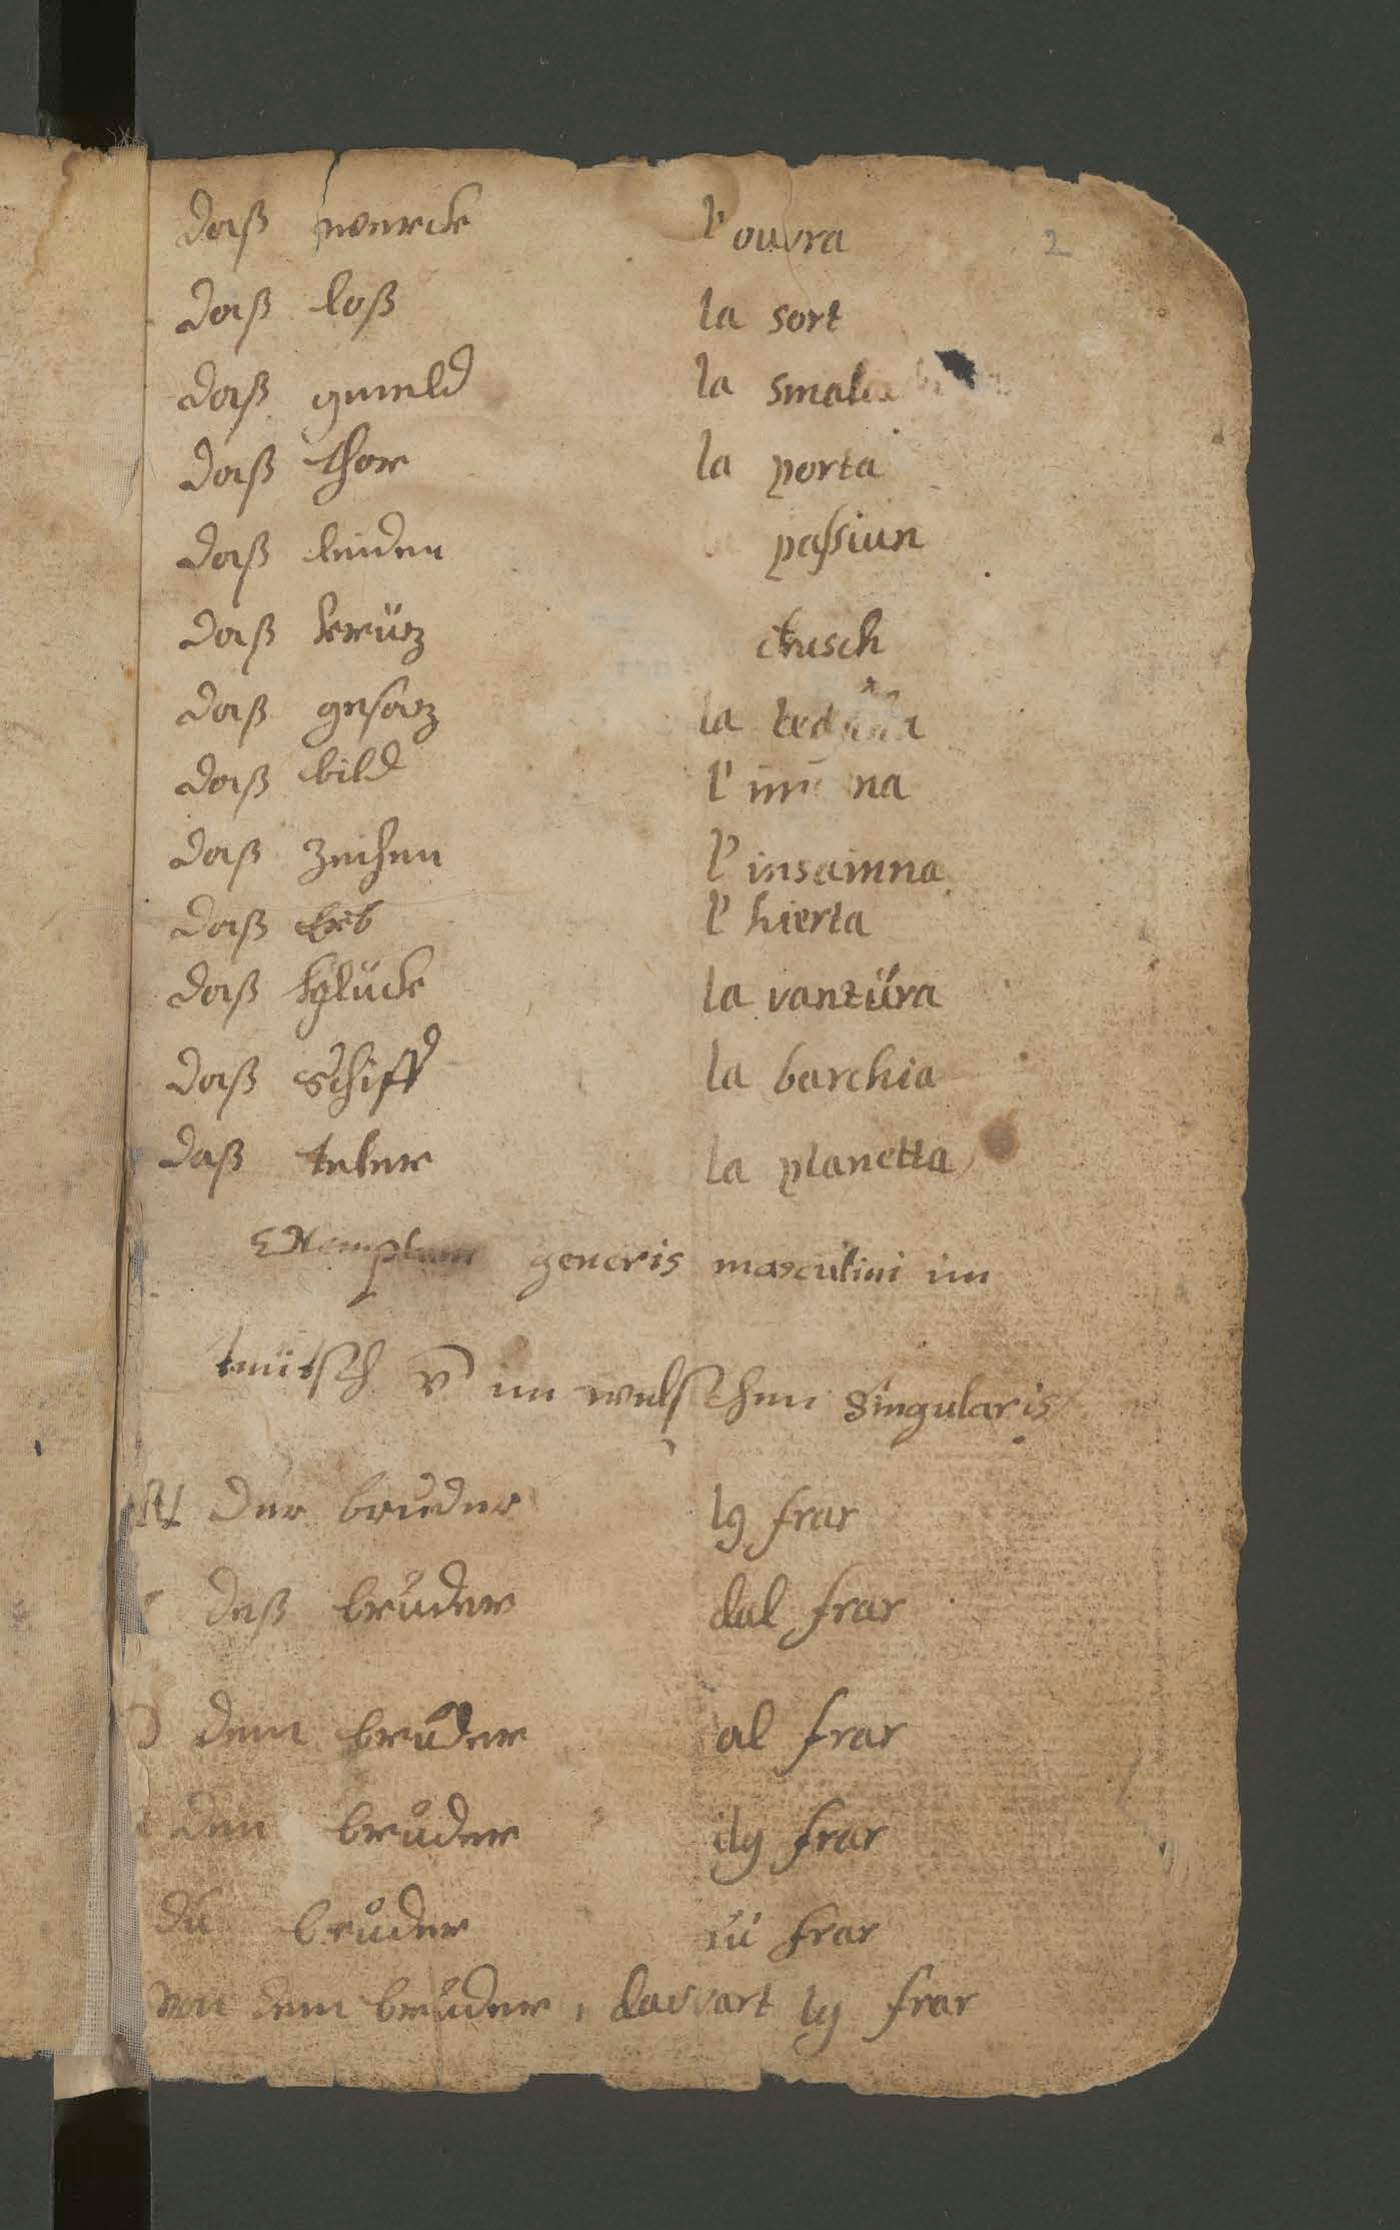 daß werck l'ouvra 2
daß loß la sort
daß gmeld la
daß thor la porta
daß leiden paſsiun
daß kreütz crusch
daß gesatz la
daß bild l'
daß zeichen l'insainna
daß erb l'hierta
daß glück la vantüra
daß schiff la barchia
daß teler la planetta
Exemplum generis masculini im
teütsch vnd im welschen Singularis
der brůder lg frar
deß brůder dal frar
dem brůder al frar
den brůder ilg frar
du brůder tü frar
von dem brůder, davvart lg frar